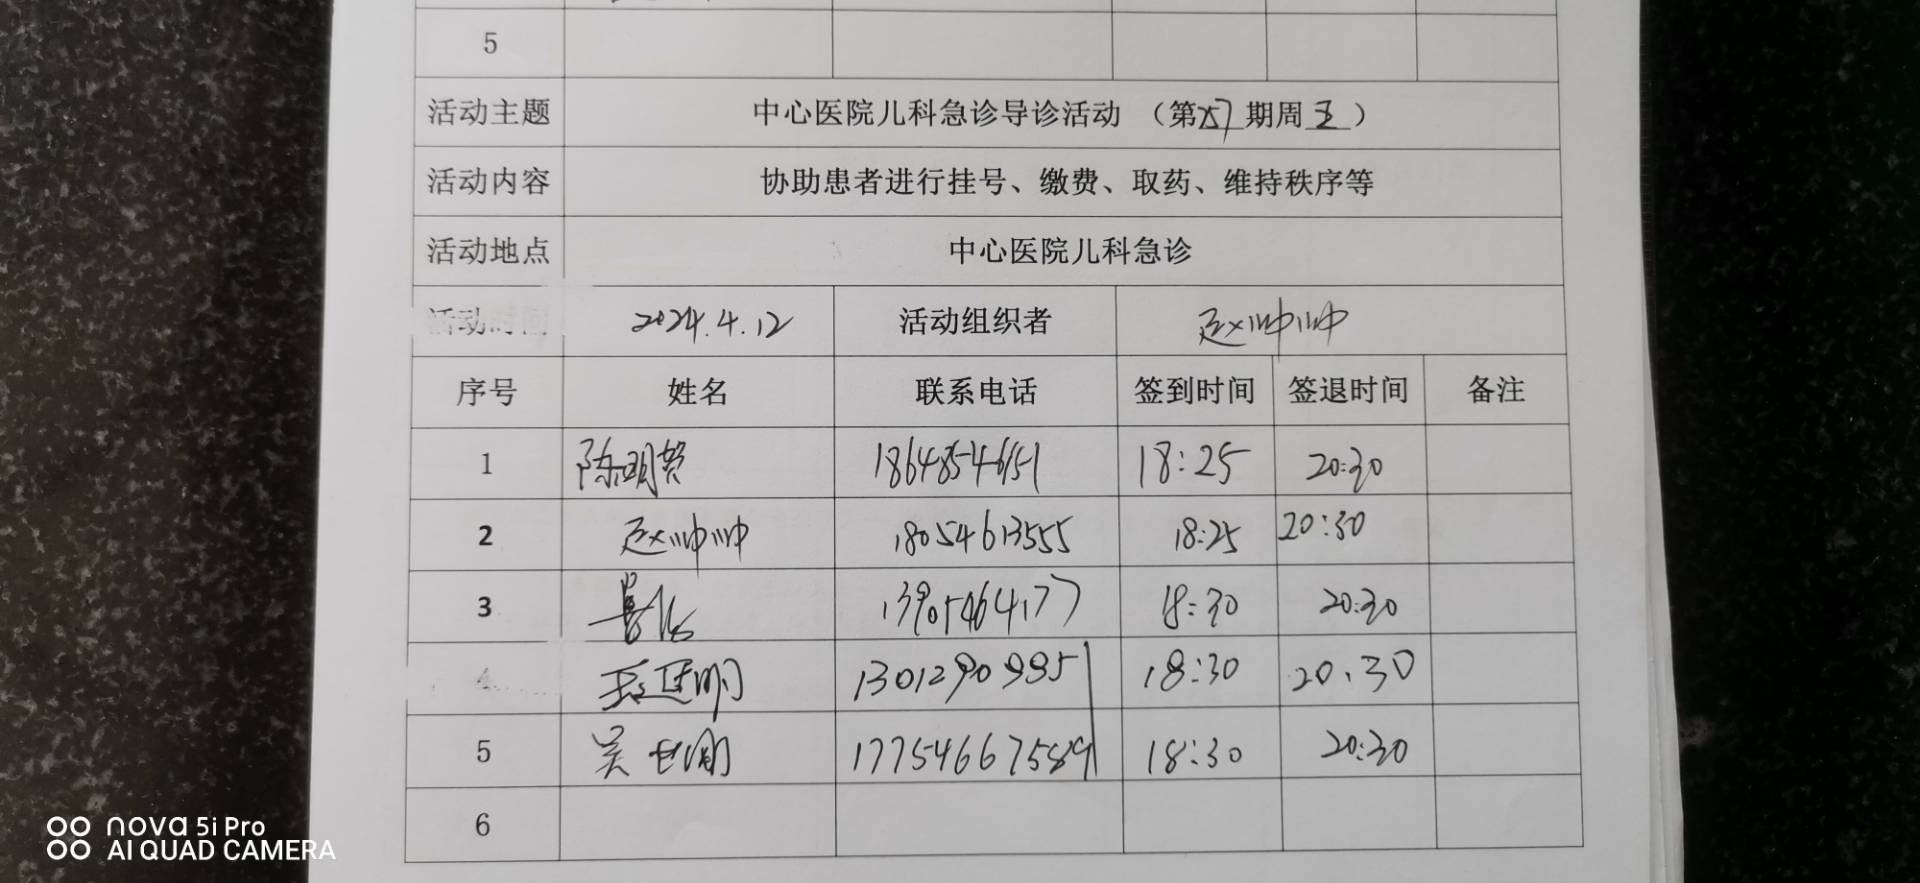 5
活动主题 中心医院儿科急诊导诊活动 (第57期周五)
活动内容 协助患者进行挂号、缴费、取药、维持秩序等
活动地点 中心医院儿科急诊
活动时间 2024.4.12 活动组织者 赵帅帅
序号 姓名 联系电话 签到时间 签退时间 备注
1 陈明贤 18648546151 18:25 20:30
2 赵帅帅 18054613555 18:25 20:30
3 13905464177 18:30 20:30
4 13012909951 18:30 20:30
5 吴世刚 17754667589 18:30 20:30
6
nova 5i Pro
AI QUAD CAMERA